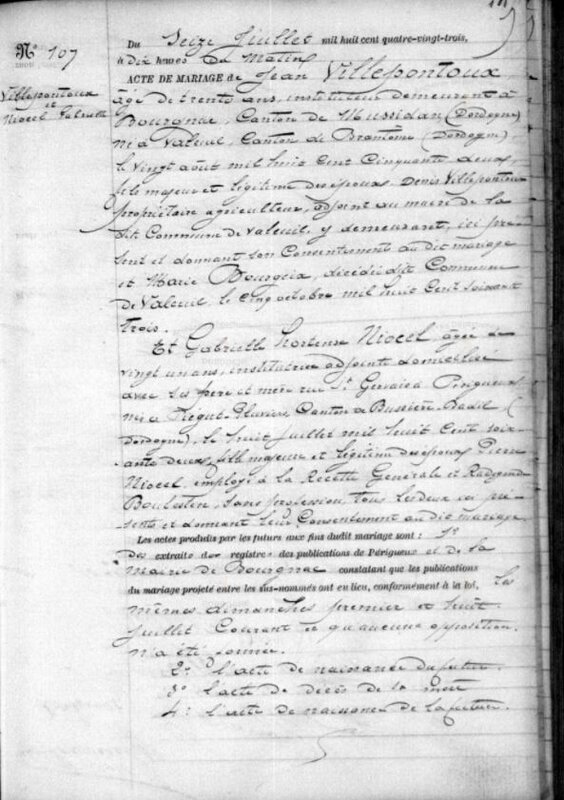 N° 107
Villepontoux
et
Niocel Gabrielle
Du Seize Juillet mil huit cent quatre-vingt-trois,
à dix heures du Matin
ACTE DE MARIAGE de Jean Villepontoux,
âgé de trente ans, instituteur demeurant à
Bourgnac, Canton de Mussidan (Dordogne)
né à Valeuil, Canton de Brantôme (Dordogne)
le vingt août mil huit Cent Cinquante deux,
fils majeur et légitime des époux Denis Villepontoux
propriétaire agriculteur, adjoint au maire de la
dite Commune de Valeuil y demeurant, ici pré-
sent et donnant son Consentement au dit mariage
et Marie Bourgeix, décédée dite Commune
de Valeuil le cinq octobre mil huit Cent soixante
trois.
Et Gabrielle hortense Niocel âgée de
vingt un ans, institutrice adjointe domiciliée
avec ses père et mère rue St Gervais à Périgueux
née à Piégut-Pluviers, Canton de Bussière-Badil (
Dordogne), le huit juillet mil huit Cent soix-
ante deux, fille majeure et légitime des époux Pierre
Niocel, employé à la Recette Générale et Radegonde
sans profession, tous les deux ici pré-
sents et donnant leur Consentement au dit mariage.
Les actes produits par les futurs aux fins dudit mariage sont : 1°
des extraits des registres des publications de Périgueux et de la
Mairie de Bourgnac constatant que les publications
du mariage projeté entre les sus-nommés ont eu lieu, conformément à la loi, les
mêmes dimanches premier et huit
juillet Courant et qu'aucune opposition
n'a été formée.
2° l'acte de naissance du futur.
3° l'acte de décès de la mère
4° l'acte de naissance de la future.